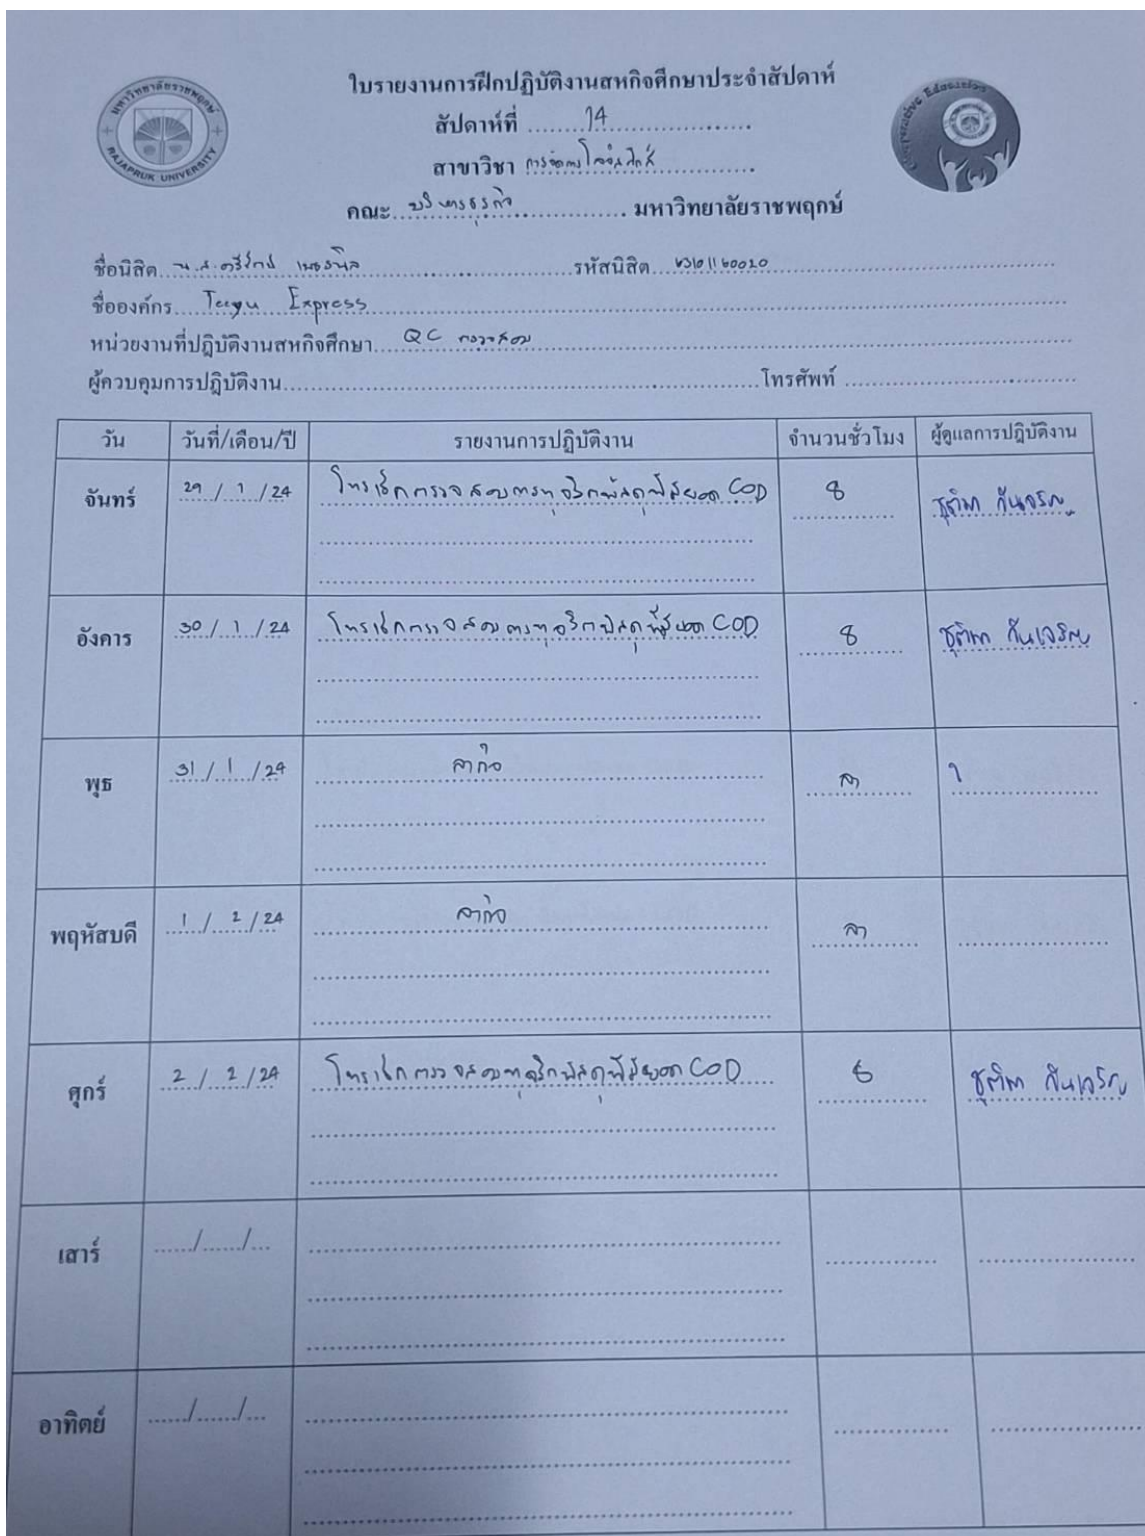 มหาวิทยาลัยราชพฤกษ์
RAJAPRUK UNIVERSITY
Cooperative Education
ใบรายงานการฝึกปฏิบัติงานสหกิจศึกษาประจำสัปดาห์
สัปดาห์ที่ ........14......................
สาขาวิชา การจัดการโลจิสติกส์
คณะ บริหารธุรกิจ มหาวิทยาลัยราชพฤกษ์
ชื่อนิสิต น.ส. รหัสนิสิต
ชื่อองค์กร Teeyu Express
หน่วยงานที่ปฏิบัติงานสหกิจศึกษา QC ตรวจสอบ
ผู้ควบคุมการปฏิบัติงาน โทรศัพท์
วัน วันที่/เดือน/ปี รายงานการปฏิบัติงาน จำนวนชั่วโมง ผู้ดูแลการปฏิบัติงาน
จันทร์ 29 / 1 / 24 โทรเช็คตรวจสอบการทุจริตพัสดุที่มียอด COD 8 ชุติมา กันเจริญ
อังคาร 30 / 1 / 24 โทรเช็คตรวจสอบการทุจริตพัสดุที่มียอด COD 8 ชุติมา กันเจริญ
พุธ 31 / 1 / 24 ลากิจ ลา
พฤหัสบดี 1 / 2 / 24 ลากิจ ลา
ศุกร์ 2 / 2 / 24 โทรเช็คตรวจสอบทุจริตพัสดุที่มียอด COD ชุติมา กันเจริญ
เสาร์ ....../....../...
อาทิตย์ ....../....../...